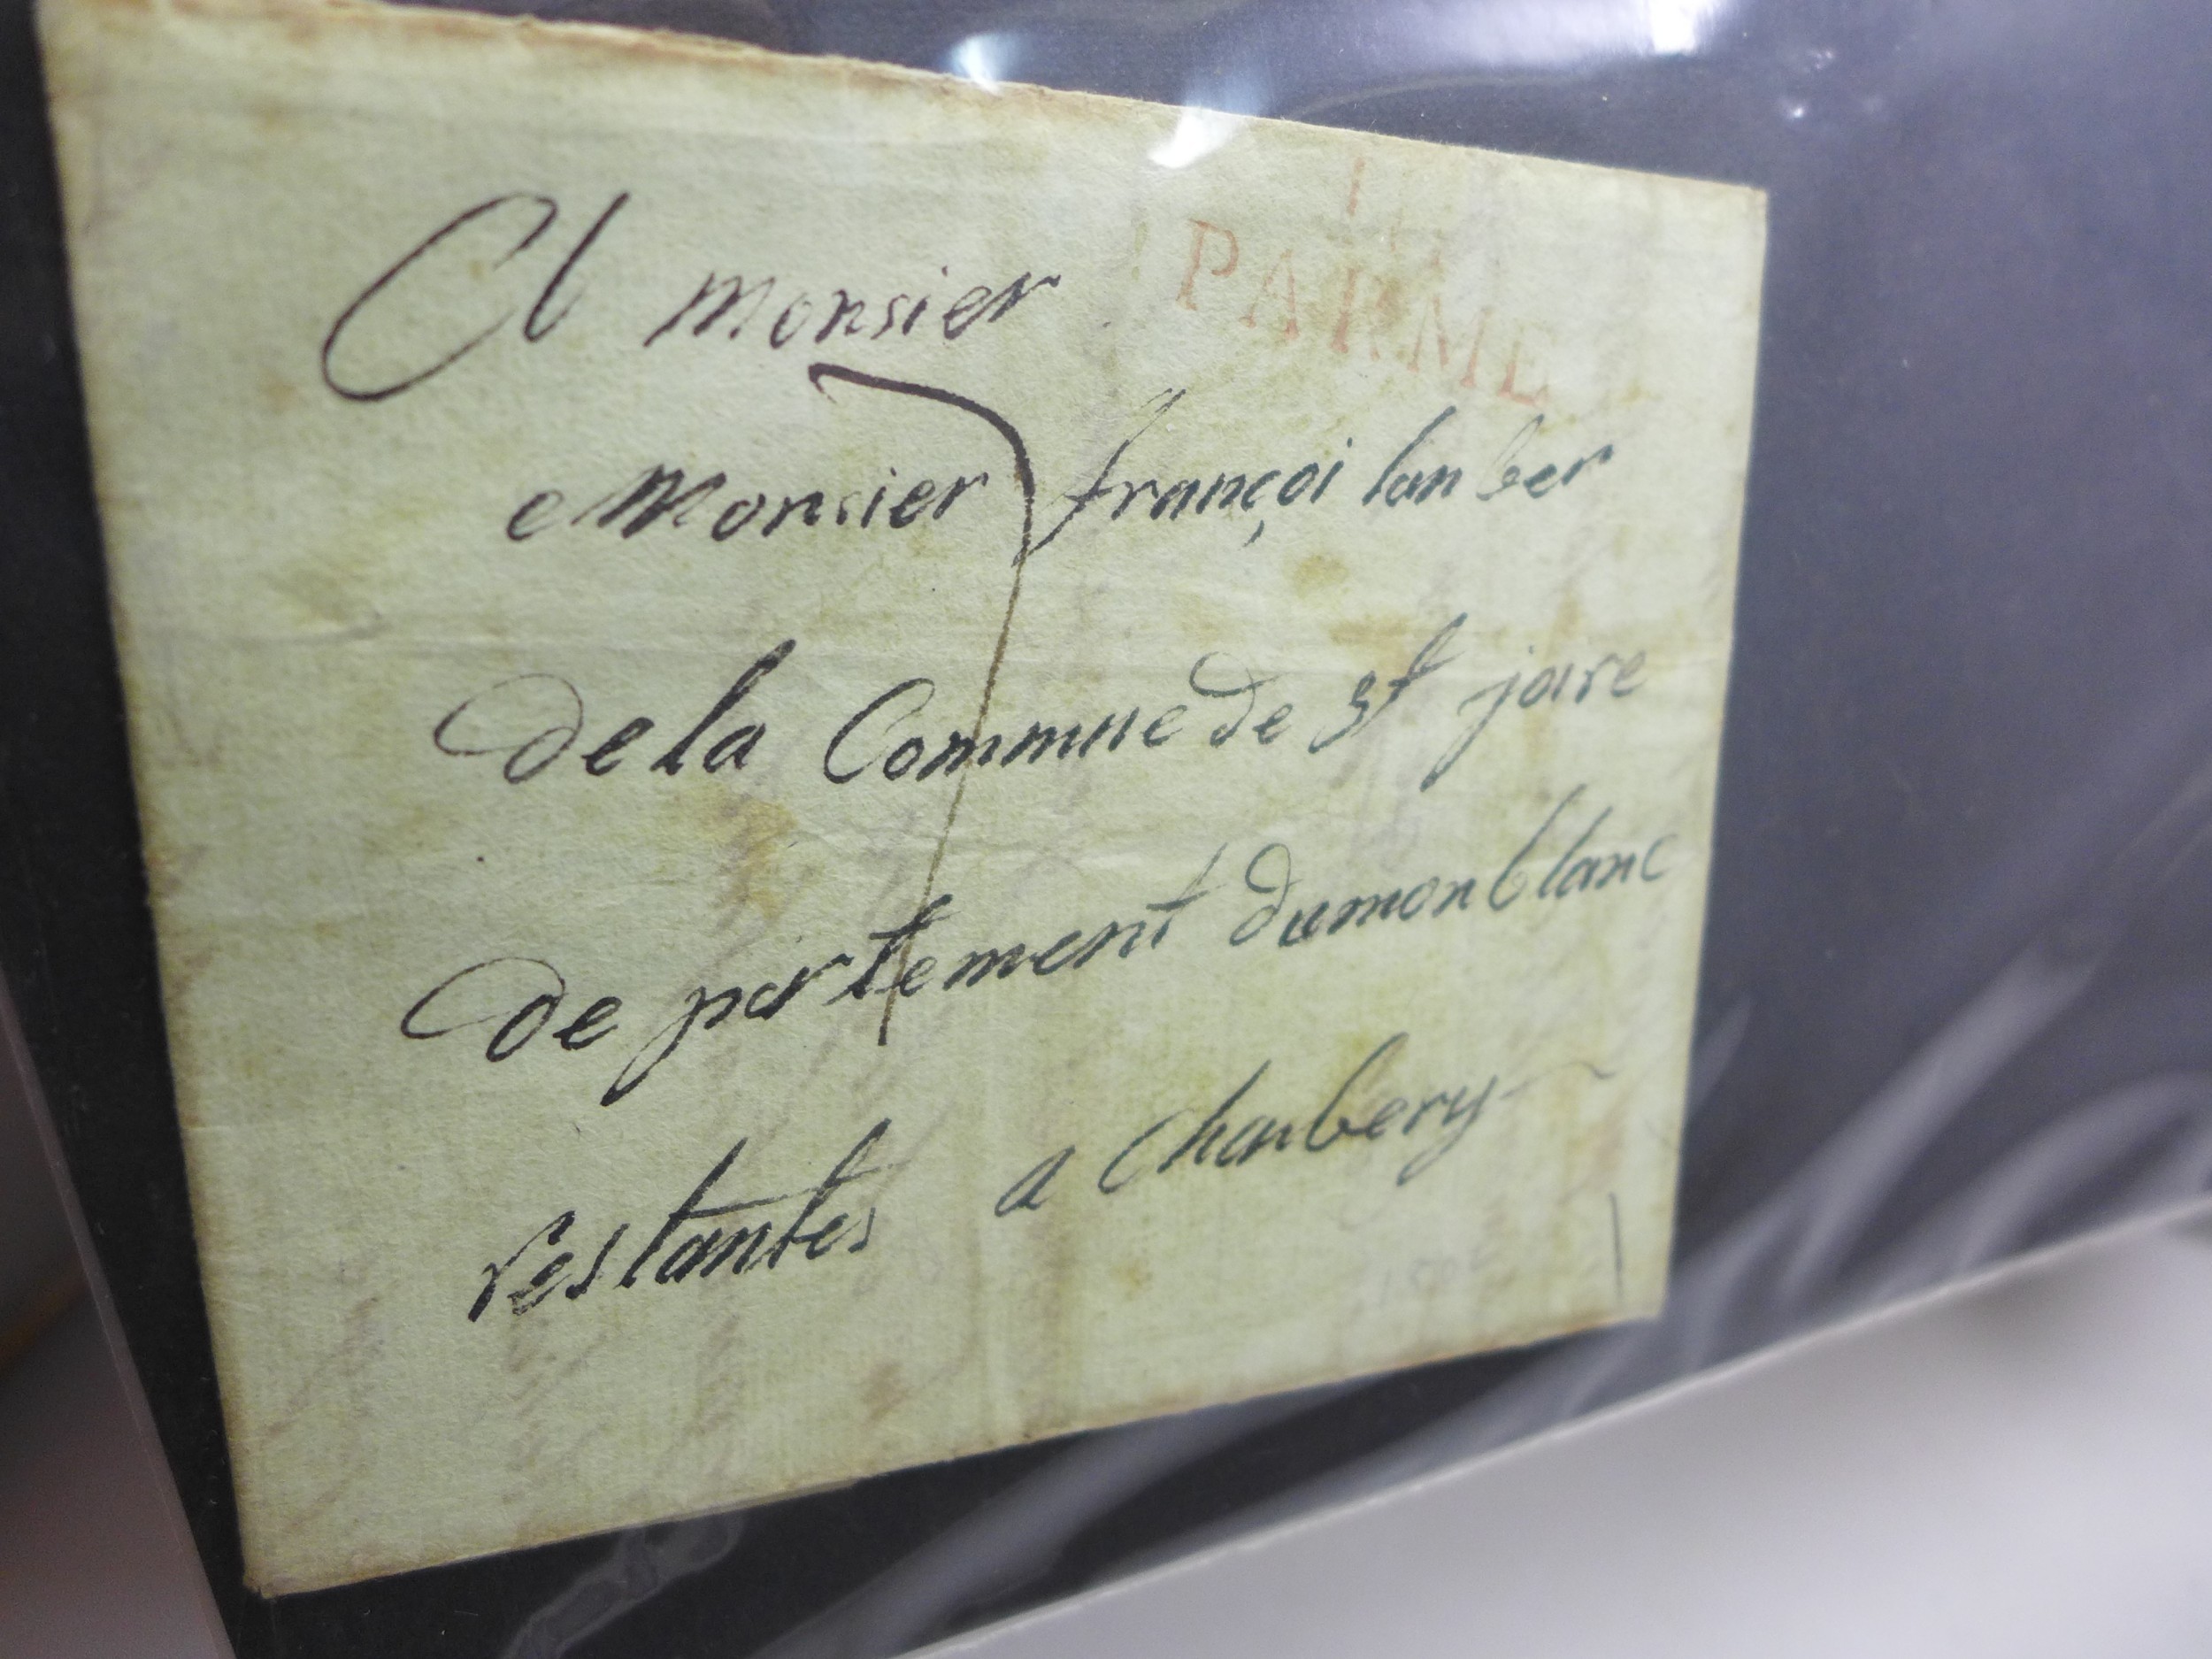 PARME
A monsier
e Monsier françoi lanber
de la Commue de st joire
de partement du mon blanc
restantes a Chanbery